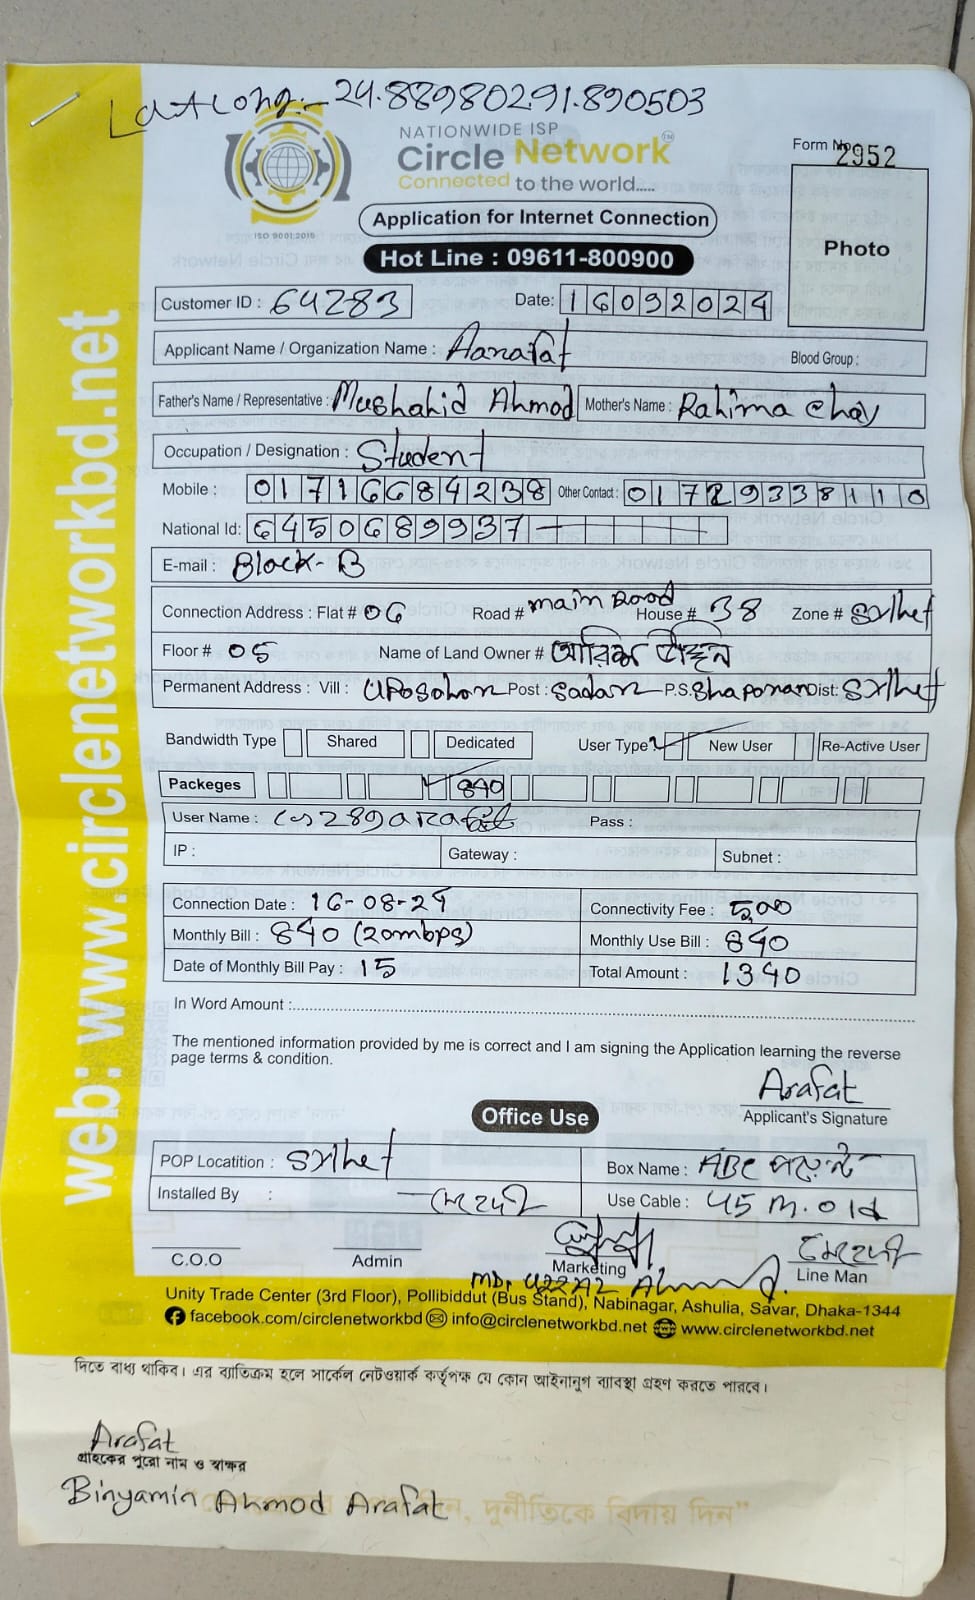 Lat Long:- 24.88980291.890503
NATIONWIDE ISP
Circle Network TM
Connected to the world.....
ISO 9001:2015
Form No. 2952
Application for Internet Connection
Photo
Hot Line : 09611-800900
Customer ID : 64283 Date: 16092024
Applicant Name / Organization Name : Aarafat Blood Group :
Father's Name / Representative : Mushahid Ahmod Mother's Name : Rahima
Occupation / Designation : Student
Mobile : 01716684238 Other Contact : 01729338110
National Id: 6450689937
E-mail : Block-B
Connection Address : Flat # 06 Road # main Rood House # 38 Zone # Sylhet
Floor # 05 Name of Land Owner #
Permanent Address : Vill : UPosohon Post : Sadar P.S. Shaporan Dist: Sylhet
Bandwidth Type Shared Dedicated User Type New User Re-Active User
Packeges 840
User Name : Pass :
IP : Gateway : Subnet :
Connection Date : 16-08-24 Connectivity Fee : ৫০০
Monthly Bill : 840 (20mbps) Monthly Use Bill : 840
Date of Monthly Bill Pay : 15 Total Amount : 1340
In Word Amount :
The mentioned information provided by me is correct and I am signing the Application learning the reverse
page terms & condition.
Arafat
Applicant's Signature
Office Use
POP Locatition : Sylhet Box Name : ABC
Installed By : মেহেদী Use Cable : 45 m. old
C.O.O Admin Marketing Line Man
মেহেদী
MD. Ahmed
Unity Trade Center (3rd Floor), Pollibiddut (Bus Stand), Nabinagar, Ashulia, Savar, Dhaka-1344
facebook.com/circlenetworkbd info@circlenetworkbd.net www.circlenetworkbd.net
web: www.circlenetworkbd.net
দিতে বাধ্য থাকিব। এর ব্যতিক্রম হলে সার্কেল নেটওয়ার্ক কর্তৃপক্ষ যে কোন আইনানুগ ব্যবস্থা গ্রহণ করতে পারবে।
Arafat
গ্রাহকের পুরো নাম ও স্বাক্ষর
Binyamin Ahmod Arafat
দুর্নীতিকে বিদায় দিন”